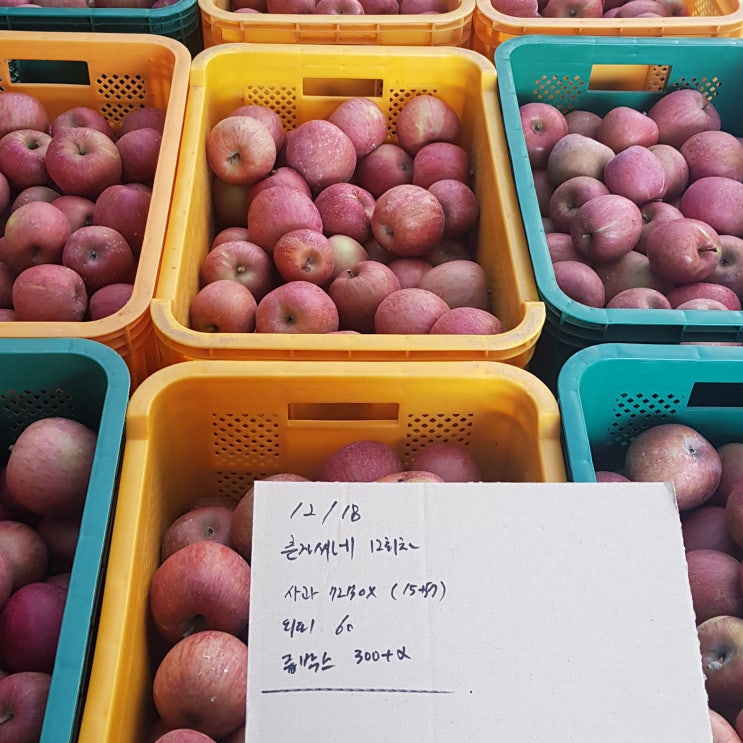 12/18
흔자쎄네 12회차
사과 72BOX (15+57)
띠지. 60
즙박스 300+α